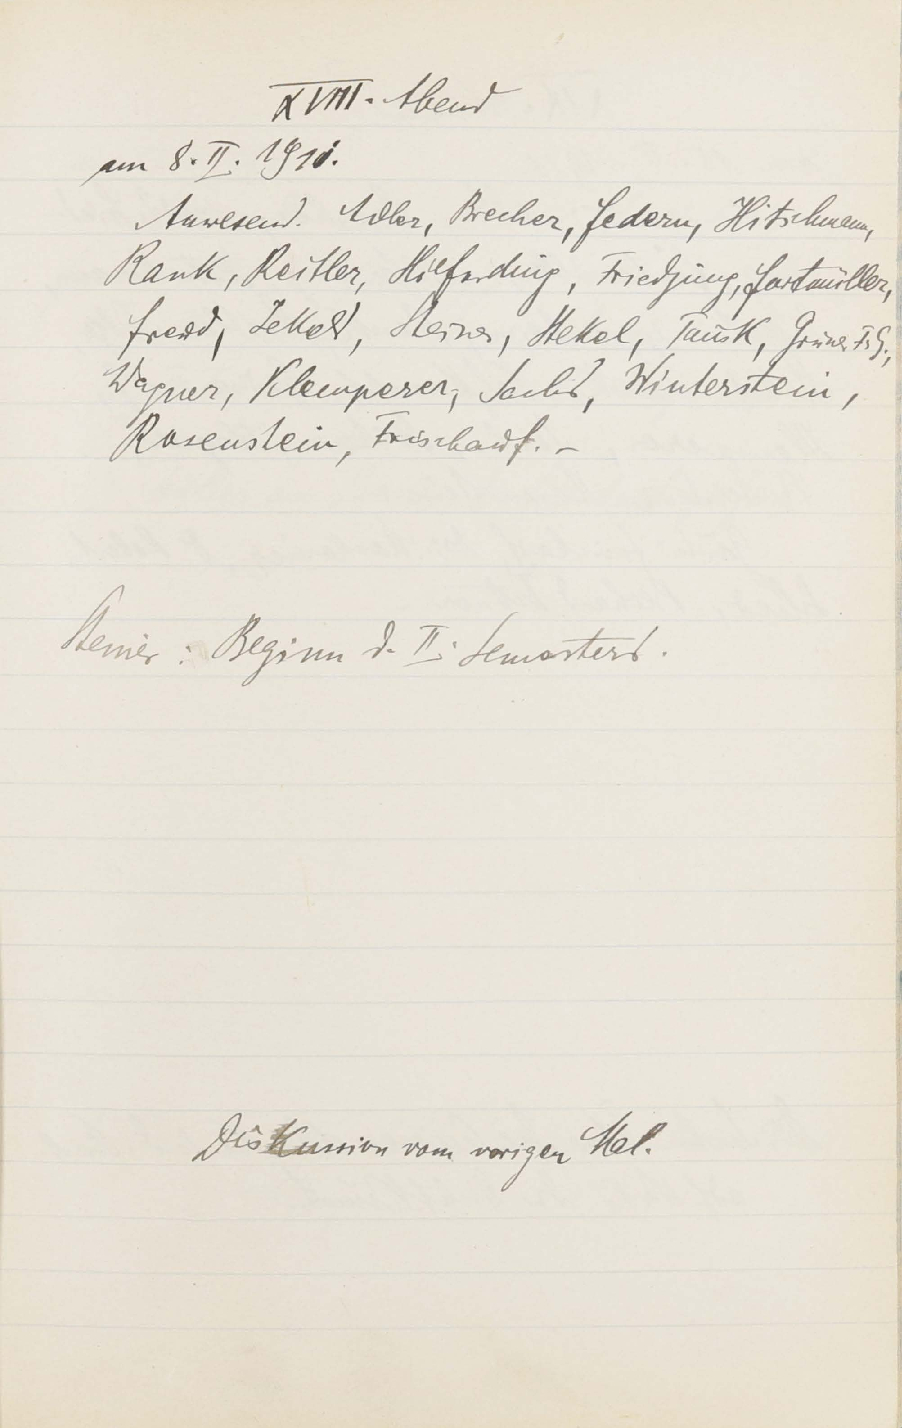 XVIII. Abend
am 8. II. 1911.
Anwesend. Adler, Brecher, Federn, Hitschmann,
Rank, Reitler, Hilferding, Friedjung, Furtmüller,
Freud, Jekels, Steiner, Stekel, Tausk, Grüner Fr. G.,
Wagner, Klemperer, Sachs, Winterstein,
Rosenstein, Frischauf. –
Steiner : Beginn d. II. Semesters.
Diskussion vom vorigen Mal.